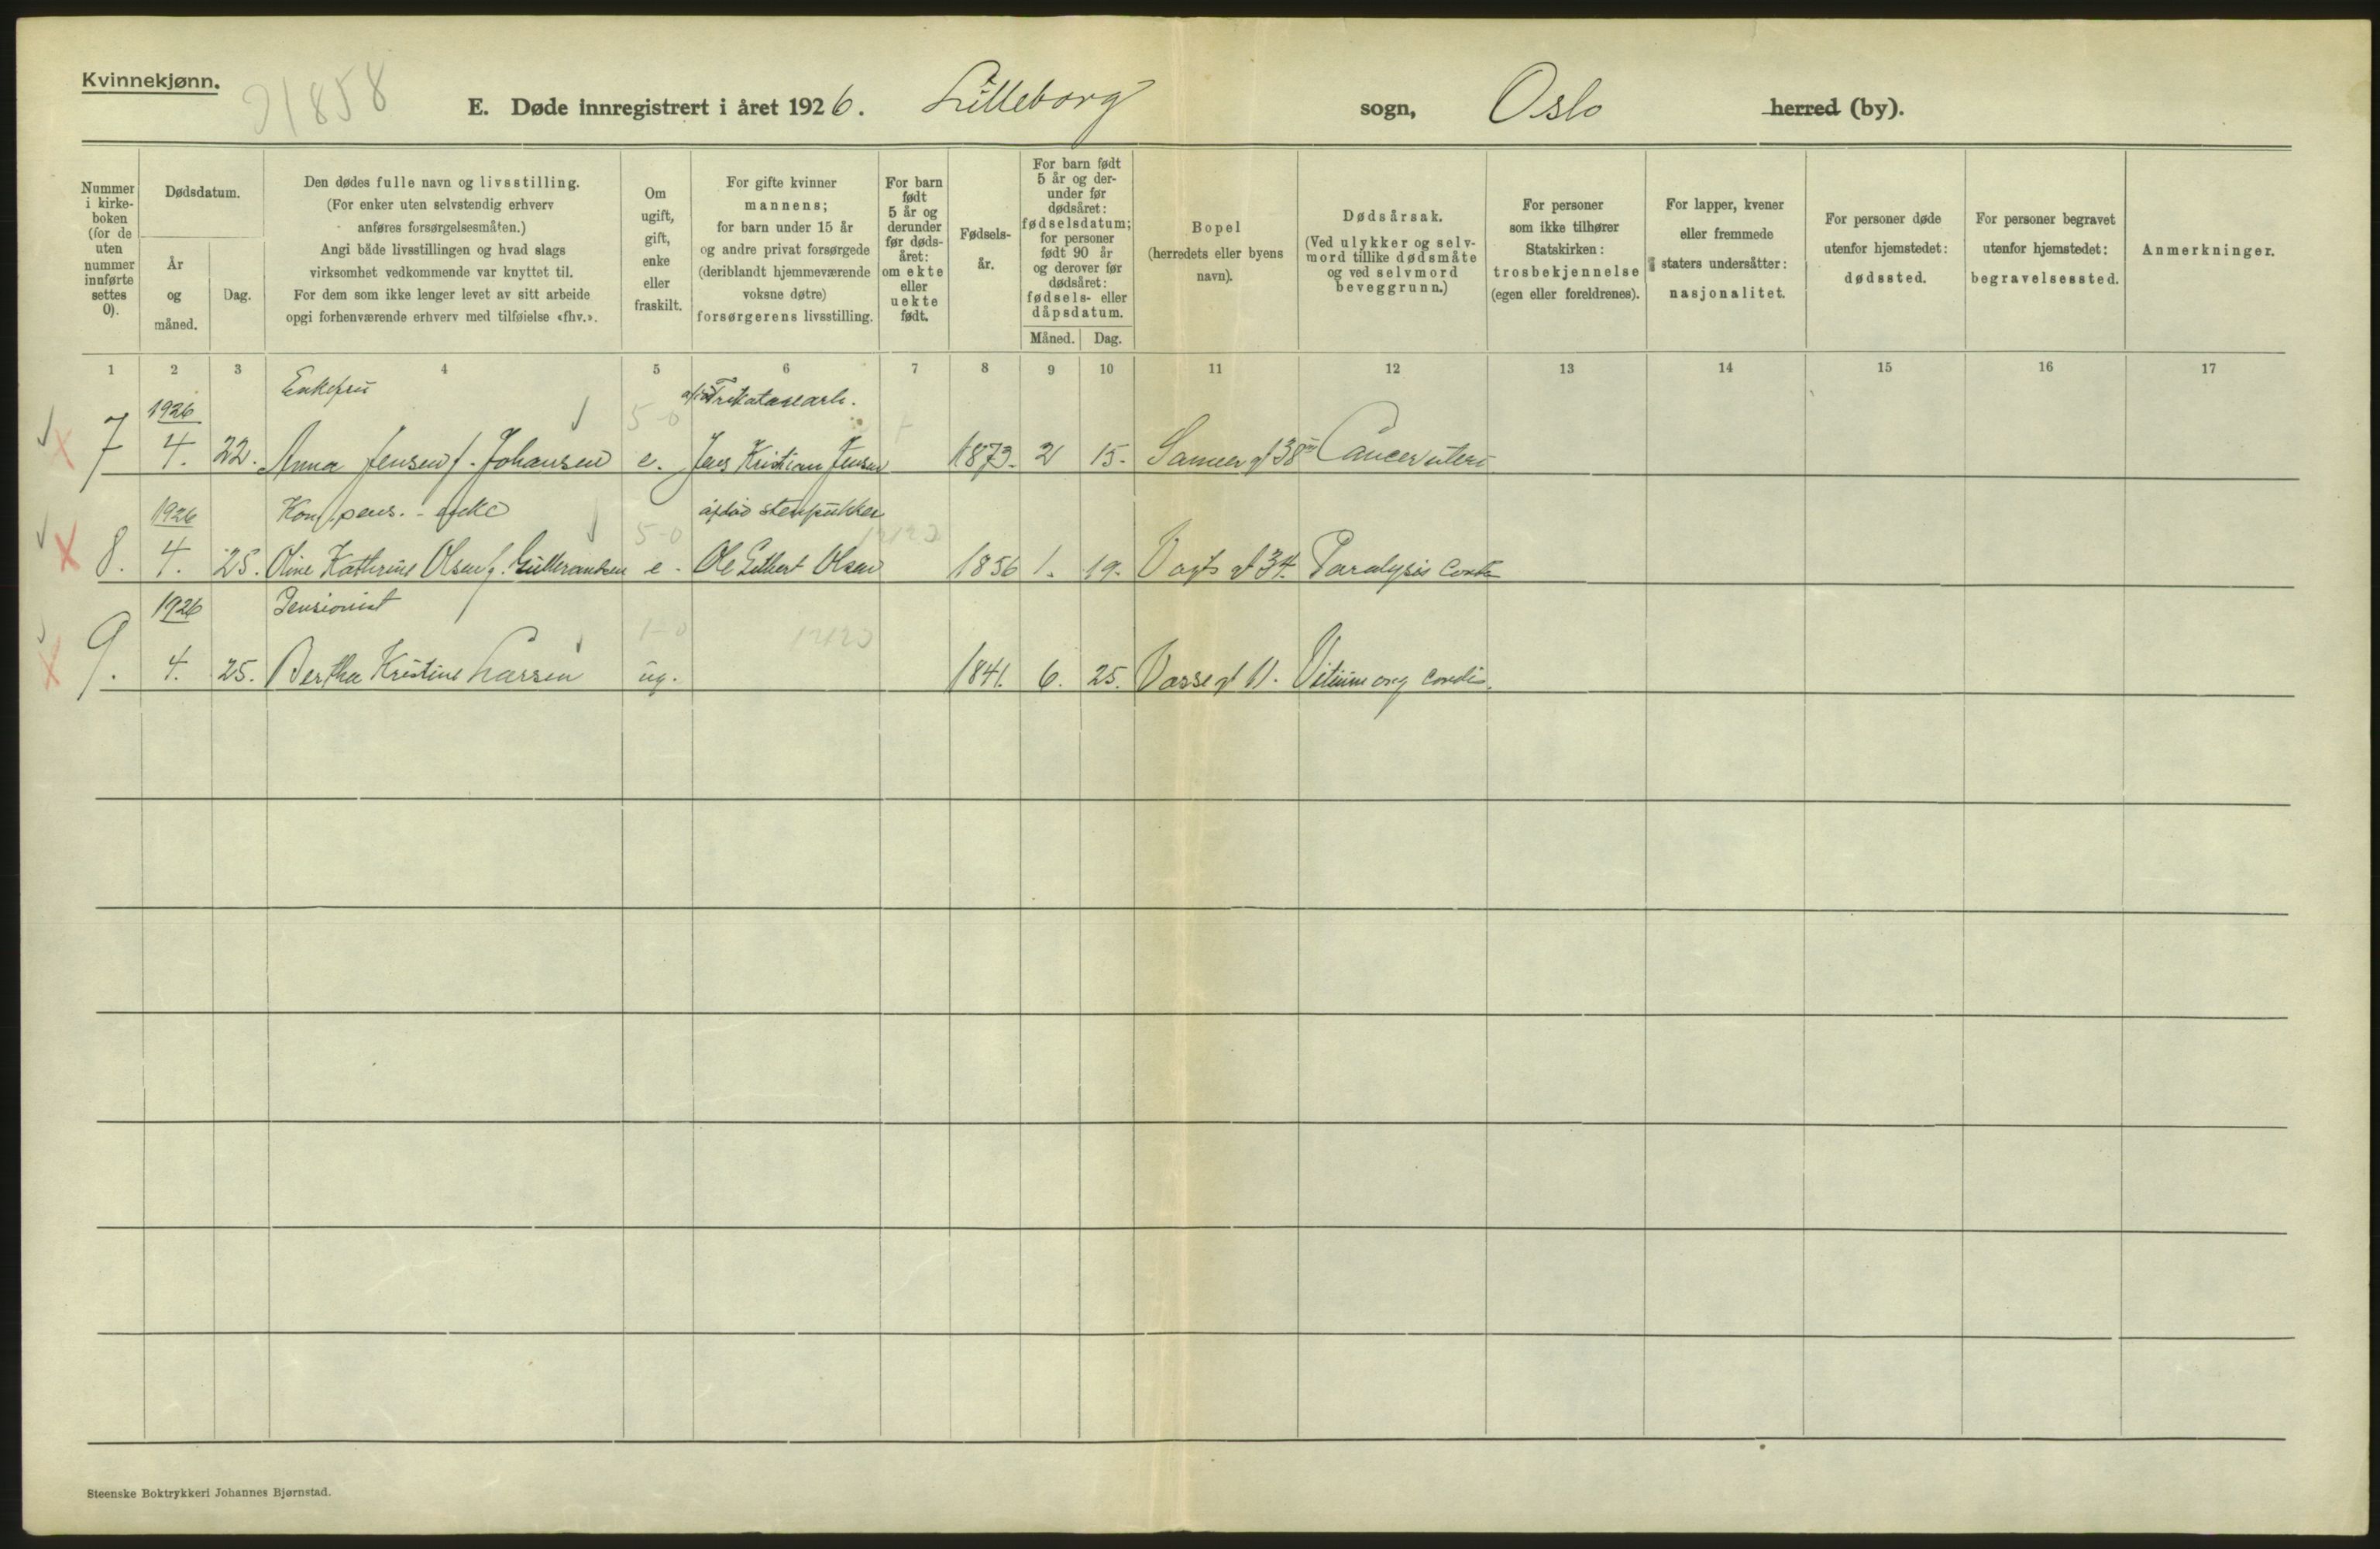 Kvinnekjønn.
91858
E. Døde innregistrert i året 1926. Lilleborg sogn, Oslo herred (by).
Nummer i kirkeboken (for de uten nummer innførte settes 0).
Dødsdatum.
År og måned.
Dag.
Den dødes fulle navn og livsstilling.
(For enker uten selvstendig erhverv
anføres forsørgelsesmåten.)
Angi både livsstillingen og hvad slags
virksomhet vedkommende var knyttet til.
For dem som ikke lenger levet av sitt arbeide
opgi forhenværende erhverv med tilføielse «fhv.».
Om ugift, gift, enke eller fraskilt.
For gifte kvinner
mannens;
for barn under 15 år
og andre privat forsørgede
(deriblandt hjemmeværende
voksne døtre)
forsørgerens livsstilling.
For barn født 5 år og derunder før dødsåret: om ekte eller uekte født.
Fødselsår.
For barn født
5 år og derunder før
dødsåret:
fødselsdatum;
for personer
født 90 år
og derover før
dødsåret:
fødsels- eller
dåpsdatum.
Måned. Dag.
Bopel
(herredets eller byens
navn).
Dødsårsak.
(Ved ulykker og selvmord tillike dødsmåte
og ved selvmord
beveggrunn.)
For personer
som ikke tilhører
Statskirken:
trosbekjennelse
(egen eller foreldrenes).
For lapper, kvener
eller fremmede
staters undersåtter:
nasjonalitet.
For personer døde
utenfor hjemstedet:
dødssted.
For personer begravet
utenfor hjemstedet:
begravelsessted.
Anmerkninger.
1 2 3 4 5 6 7 8 9 10 11 12 13 14 15 16 17
1926 Enkefru 5-0
7 4. 22. Anna Jensen f. Johansen e. Jens Kristian Jensen 1873. 2 15. Cancer uteri
1926 enke 5-0 avdød stenpukker
8. 4. 25. Oline Kathrine Olsen f. e. Ole Olsen 1856 1. 19. Vogts gt 34. Paralysis cordis
1926 Pensionist 1-0
9. 4. 25. Bertha Kristine Larsen ug. 1841. 6. 25. Vosse gt 11. Vitium org cordis.
Steenske Boktrykkeri Johannes Bjørnstad.